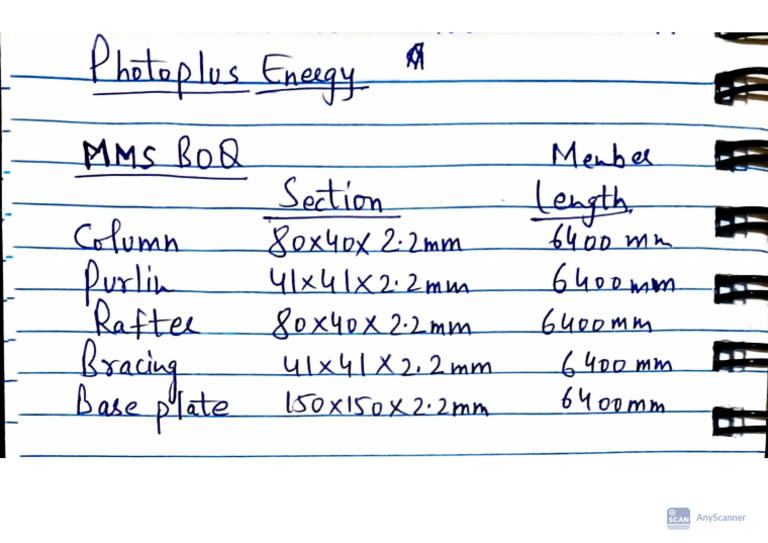 Photoplus Energy
MMS BOQ Member
Section Length
Column 80x40x 2.2mm 6400 mm
Purlin 41x41x2.2mm 6400mm
Rafter 80x40x2.2mm 6400mm
Bracing 41x41x2.2mm 6400mm
Base plate 150x150x2.2mm 6400mm
SCAN AnyScanner